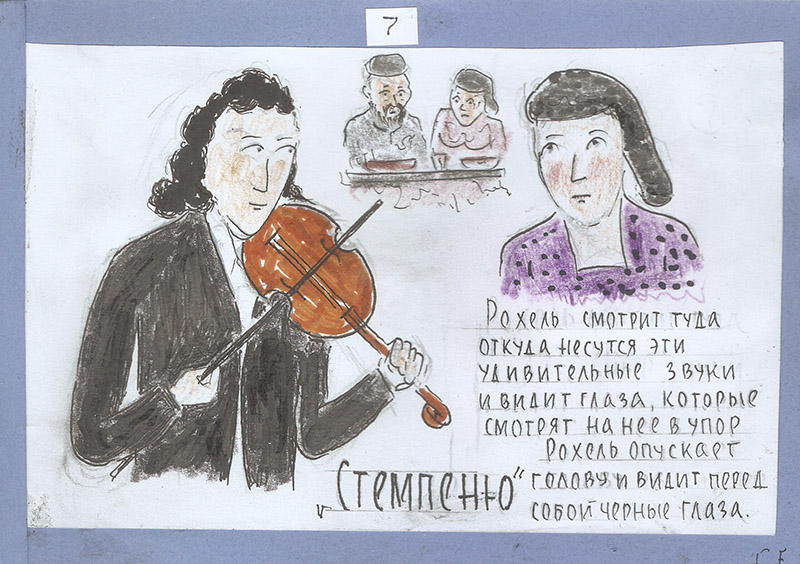 7
Рохель смотрит туда
откуда несутся эти
удивительные звуки
и видит глаза, которые
смотрят на нее в упор
Рохель опускает
голову и видит перед
собой черные глаза.
„Стемпеню"